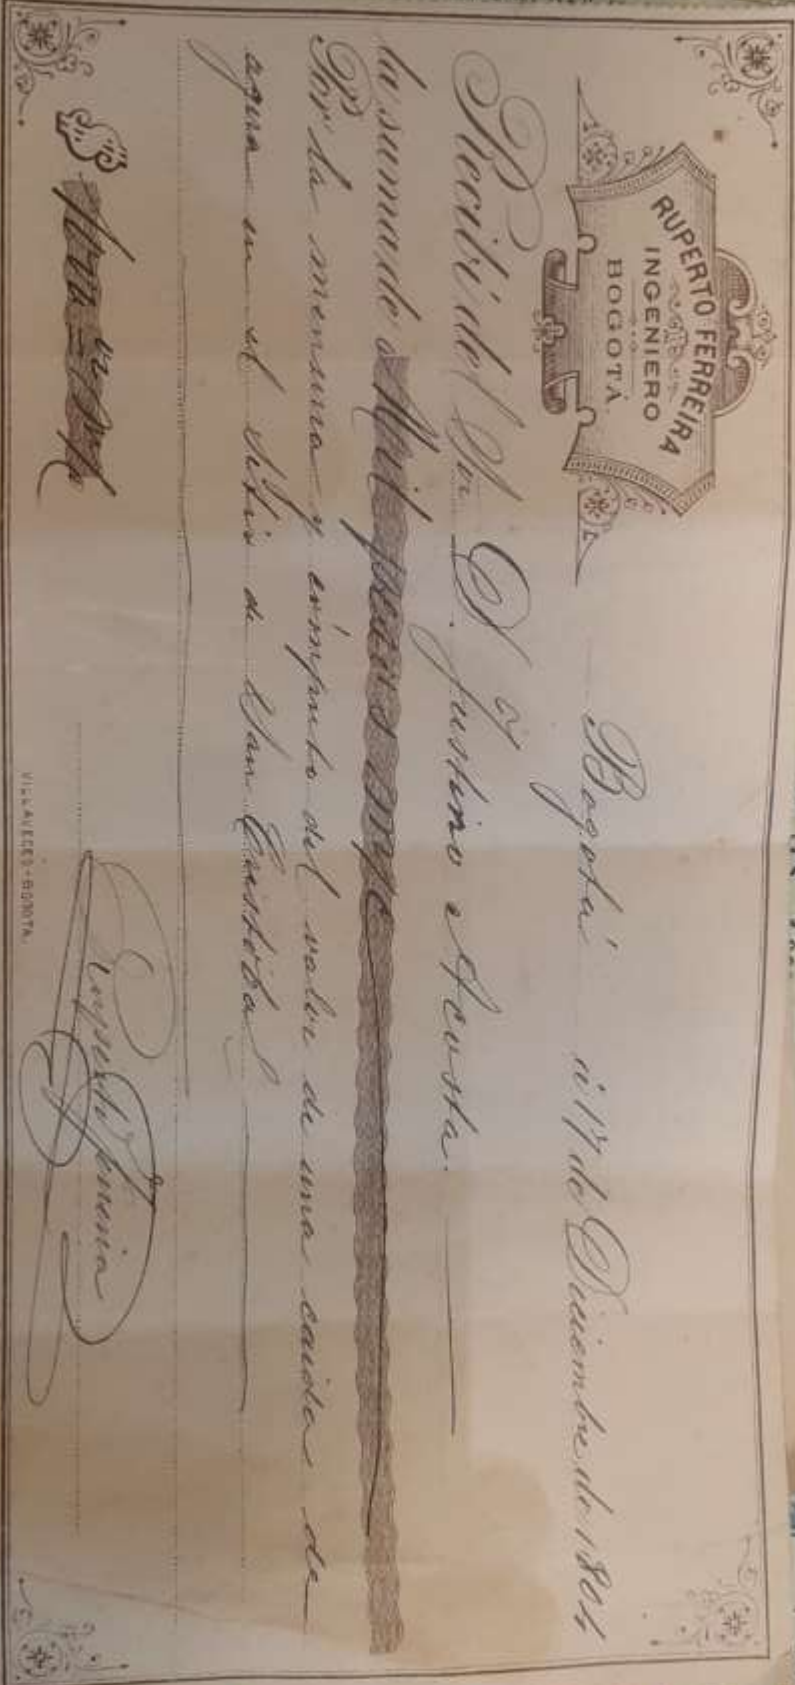 RUPERTO FERREIRA
INGENIERO
BOGOTÁ.
Bogotá á 17 de Diciembre de 1904
Recibí del Sr. D. Justino Acosta.
la suma de Mil pesos m/c
Por la mensura y cómputo del valor de una caída de
agua en el Sitio de San Cristóbal
$
Ruperto Ferreira
VILLAVECES-BOGOTA.